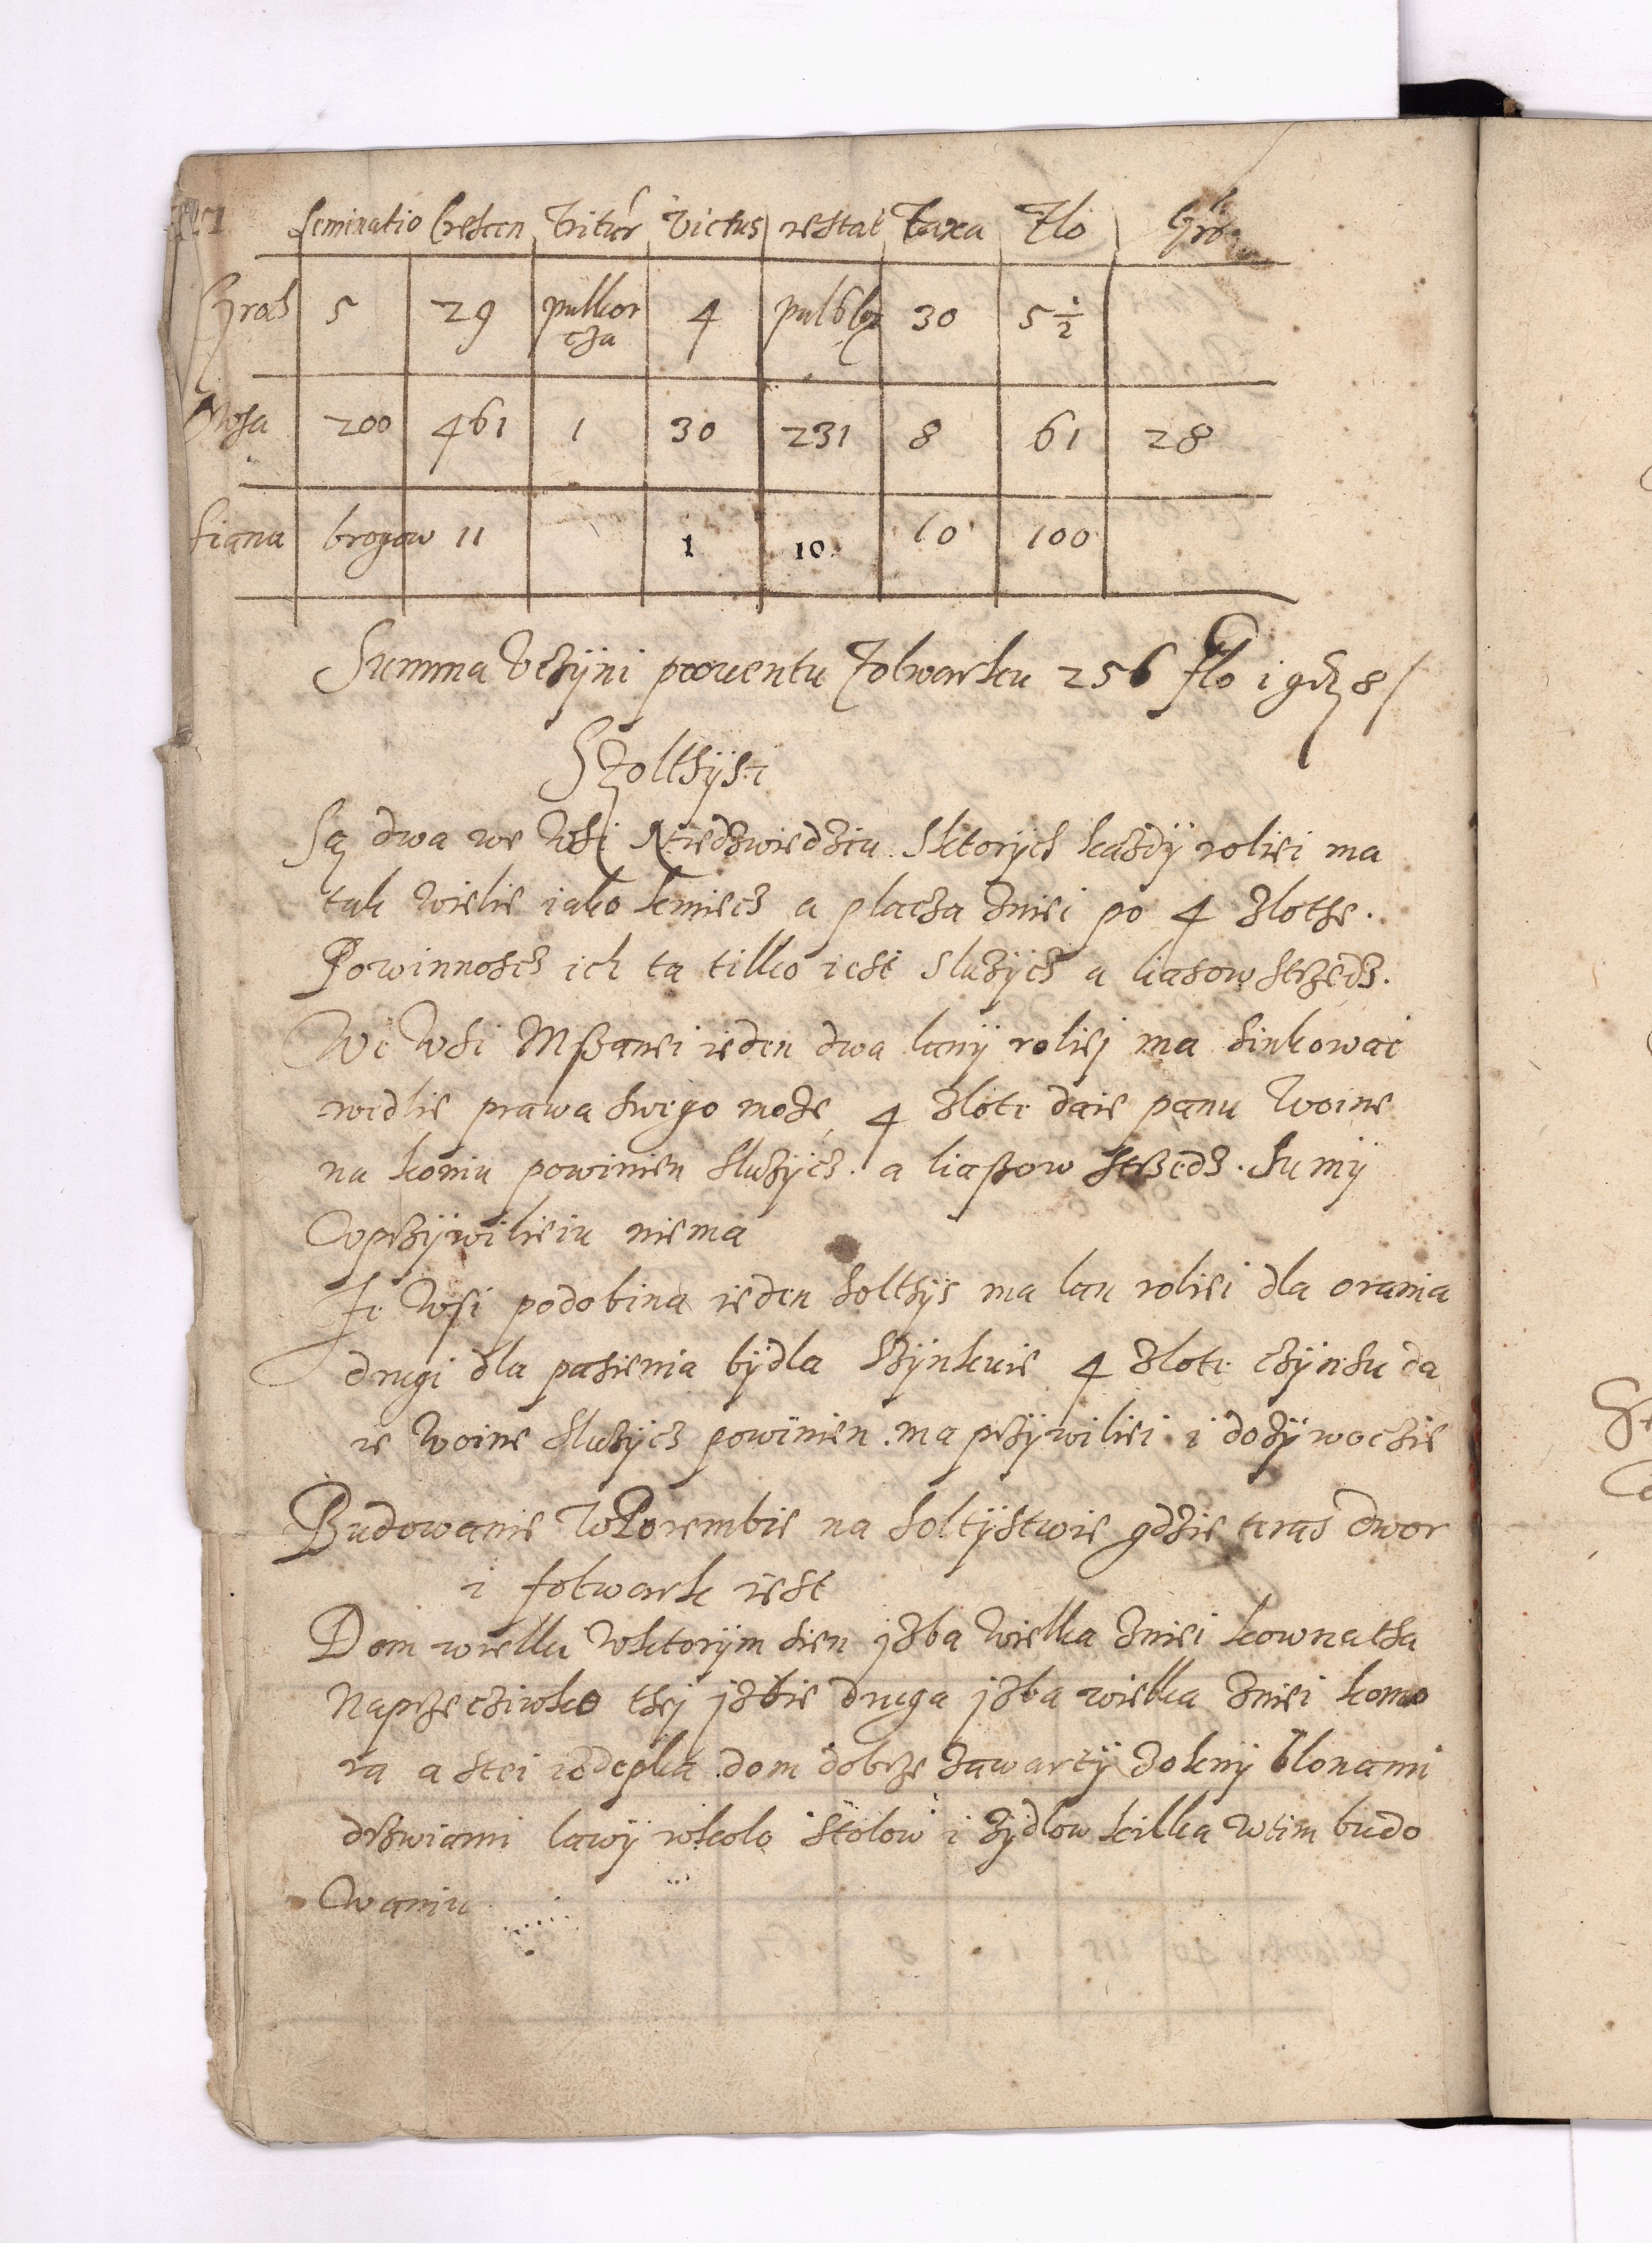 Seminatio Crescen Tritur Victus restat Taxa Flo Gro
Groch 5 29 pulkor cza 4 pul6 30 5 1/2
Owsa 200 461 1 30 231 8 61 28
Siana brogow 11 1 10 10 100
Summa Vczÿni prouentu Folwarku 256 Flo i 8
Szolthÿsi
Są dwa we Wsi Niedzwiedziu. Sktorÿch kazdÿ roliei ma
tak wielie iako kmiecz a placza zniei po 4 zlothe.
Powinnoscz ich ta tilko iest sluzÿcz a liasow strzedz.
We Wsi Mßanei ieden dwa lanÿ roliej ma sinkowac
wedlie prawa swego moze, 4 zlote daie panu Woine
na koniu powinien sluzÿcz. a liaßow strzedz. Sumÿ
wprzÿwilieiu niema
We Wsi podobina ieden solthÿs ma lan roliei dla orania
drugi dla pasienia bÿdla Szÿnkuie 4 zlote czÿnsu da
ie Woine sluzÿcz powinien. ma przÿwiliei i dozÿwoczie
Budowanie WPorembie na soltÿstwie gdzie teras dwor
i folwark iest
Dom wielki Wktorÿm sien jzba Wielka zniei kownatha
Naprzecziwko thej jzbie druga jzba wielka zniei komo
ra a stei izdepka. dom dobrze zawartÿ zoknÿ blonami
drzwiami lawÿ wkolo stolow i zÿdlow kilka Wtim budo
waniu